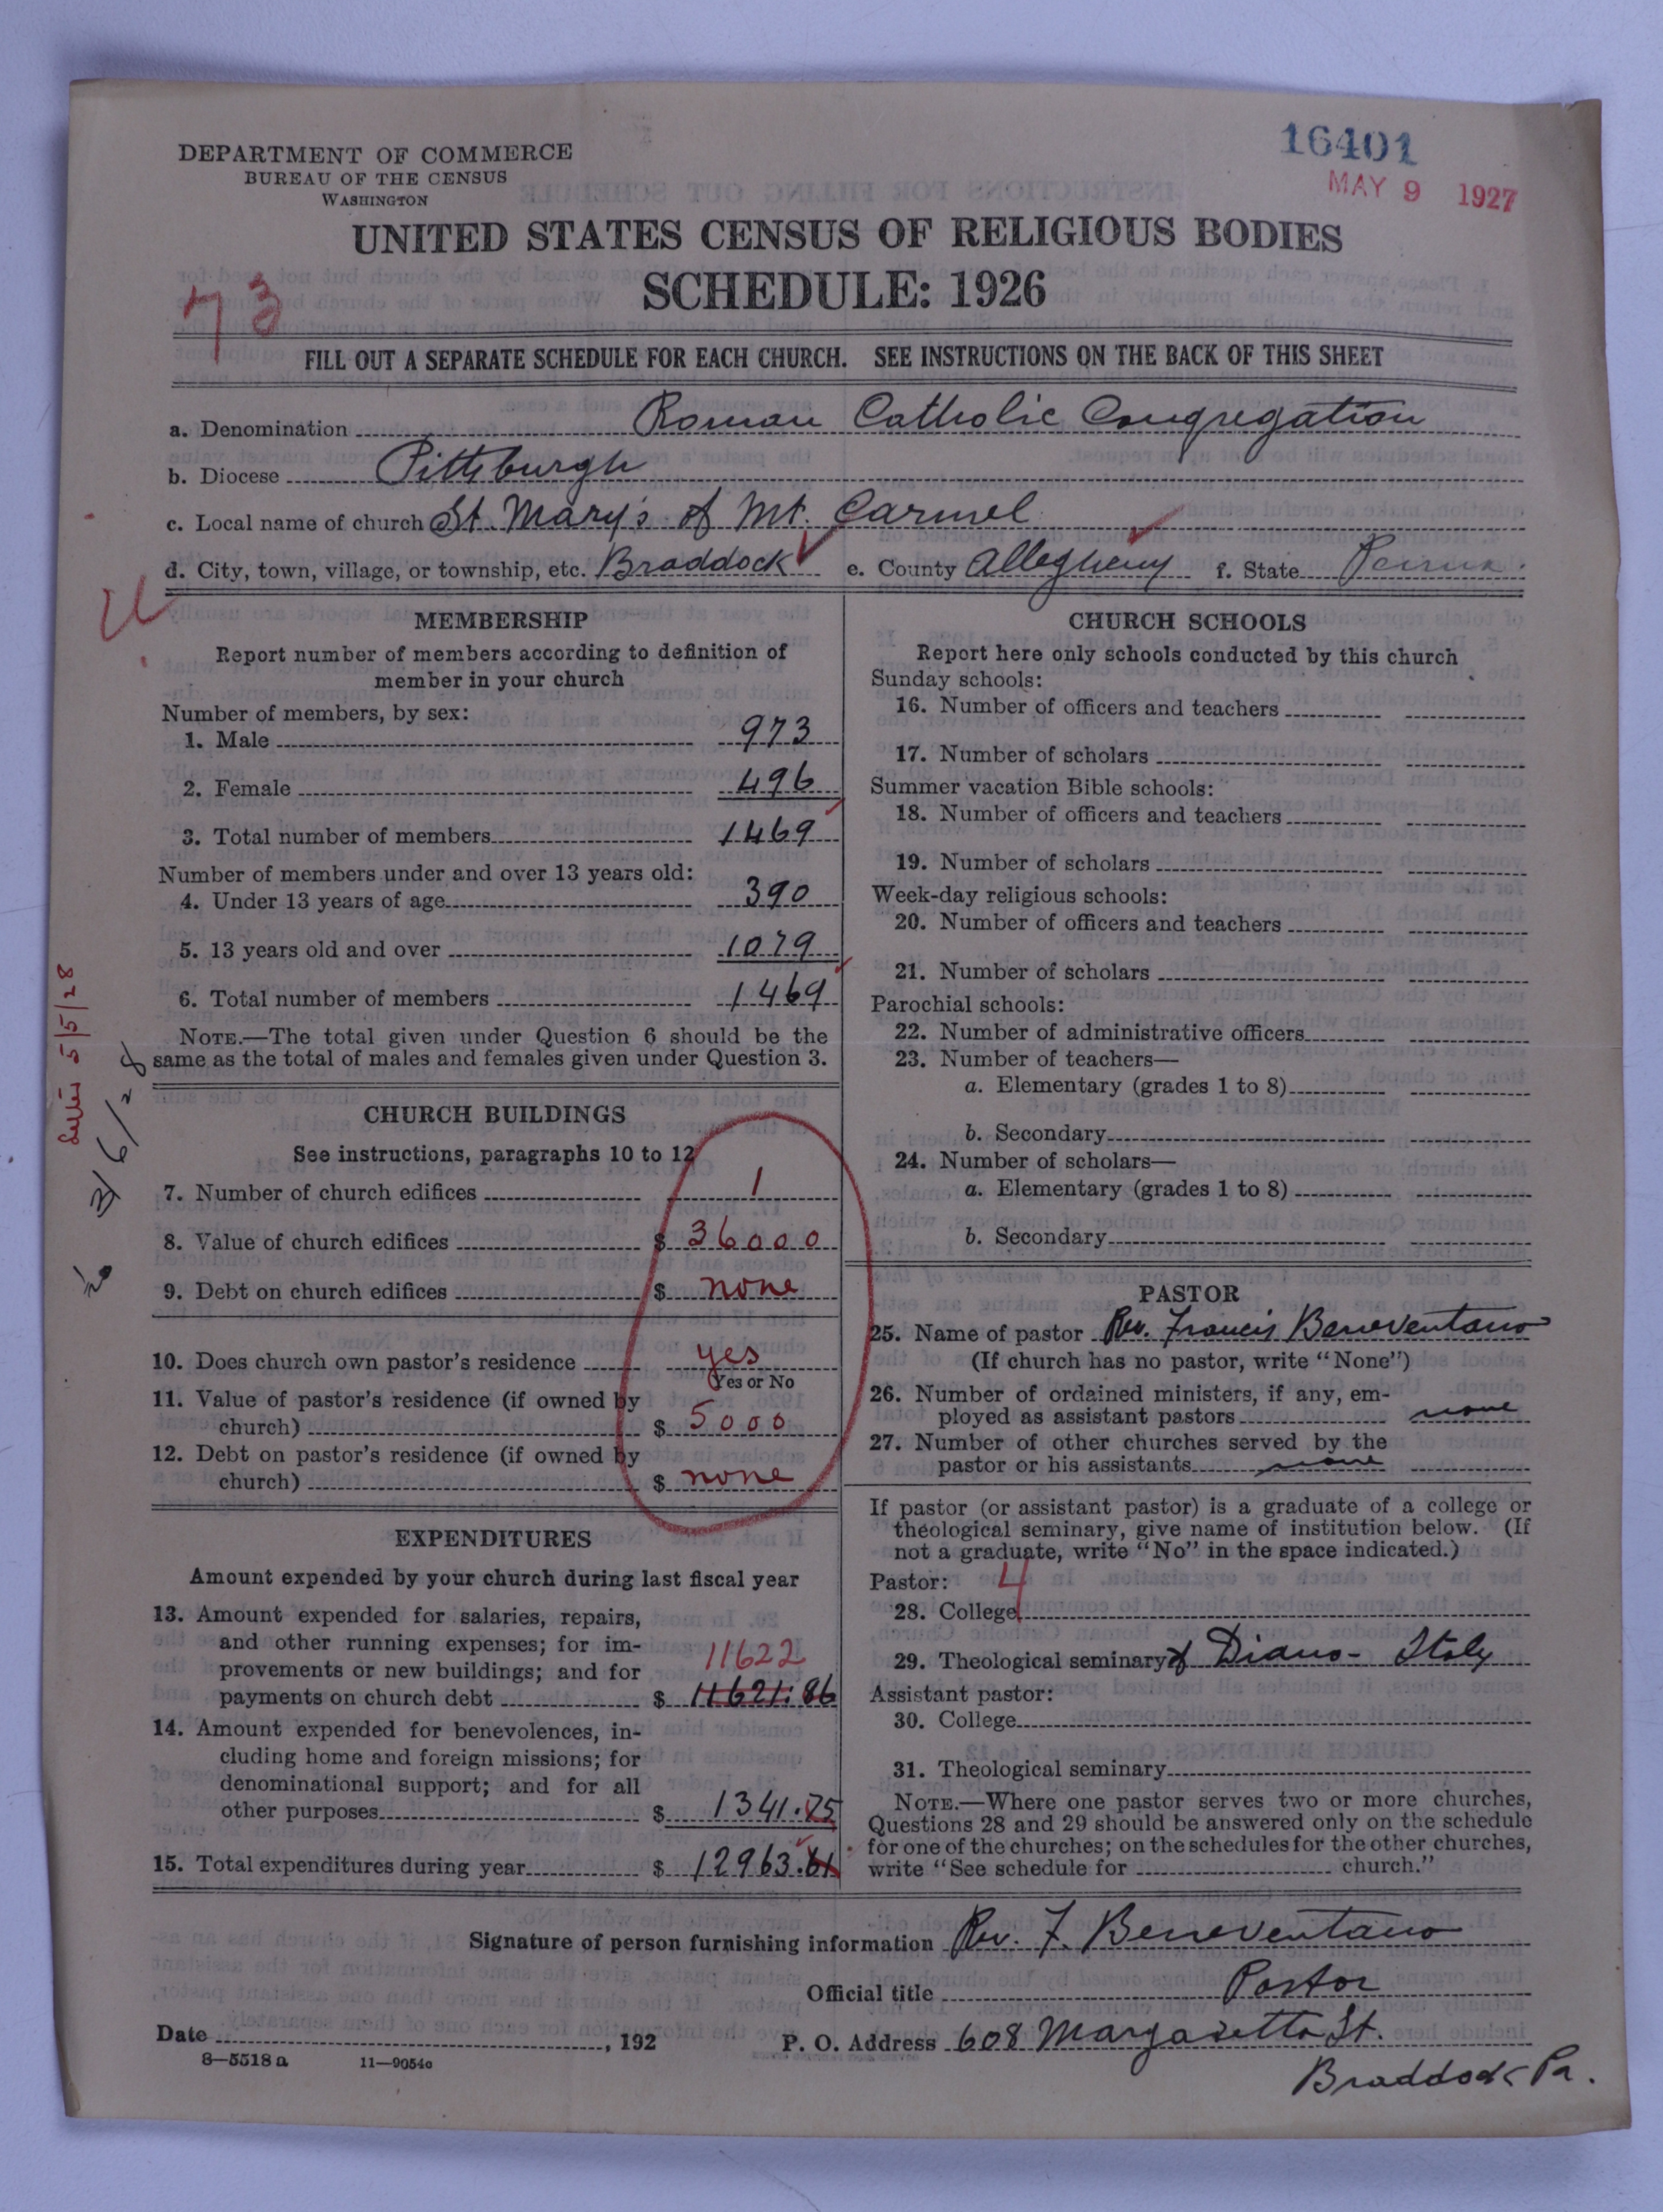 DEPARTMENT OF COMMERCE
BUREAU OF THE CENSUS
WASHINGTON
16401
MAY 9 1927
UNITED STATES CENSUS OF RELIGIOUS BODIES
SCHEDULE: 1926
73
FILL OUT A SEPARATE SCHEDULE FOR EACH CHURCH. SEE INSTRUCTIONS ON THE BACK OF THIS SHEET
a. Denomination Roman Catholic Congregation
b. Diocese Pittsburgh
c. Local name of church St. Mary's of Mt. Carmel
d. City, town, village, or township, etc. Braddock e. County Allegheny f. State Penna.
MEMBERSHIP
Report number of members according to definition of
member in your church
Number of members, by sex:
1. Male 973
2. Female 496
3. Total number of members 1469
Number of members under and over 13 years old:
4. Under 13 years of age 390
5. 13 years old and over 1079
6. Total number of members 1469
NOTE.—The total given under Question 6 should be the
same as the total of males and females given under Question 3.
5/5/28
3/6/28
CHURCH BUILDINGS
See instructions, paragraphs 10 to 12
7. Number of church edifices 1
8. Value of church edifices $ 36000
9. Debt on church edifices $ none
10. Does church own pastor's residence yes
Yes or No
11. Value of pastor's residence (if owned by
church) $ 5000
12. Debt on pastor's residence (if owned by
church) $ none
EXPENDITURES
Amount expended by your church during last fiscal year
13. Amount expended for salaries, repairs,
and other running expenses; for im-
provements or new buildings; and for 11622
payments on church debt $ 11621.86
14. Amount expended for benevolences, in-
cluding home and foreign missions; for
denominational support; and for all
other purposes $ 1341.75
15. Total expenditures during year $ 12963.61
CHURCH SCHOOLS
Report here only schools conducted by this church
Sunday schools:
16. Number of officers and teachers
17. Number of scholars
Summer vacation Bible schools:
18. Number of officers and teachers
19. Number of scholars
Week-day religious schools:
20. Number of officers and teachers
21. Number of scholars
Parochial schools:
22. Number of administrative officers
23. Number of teachers—
a. Elementary (grades 1 to 8)
b. Secondary
24. Number of scholars—
a. Elementary (grades 1 to 8)
b. Secondary
PASTOR
25. Name of pastor Rev. Francis Beneventano
(If church has no pastor, write "None")
26. Number of ordained ministers, if any, em-
ployed as assistant pastors none
27. Number of other churches served by the
pastor or his assistants none
If pastor (or assistant pastor) is a graduate of a college or
theological seminary, give name of institution below. (If
not a graduate, write "No" in the space indicated.)
Pastor: 4
28. College
29. Theological seminary of Diano - Italy
Assistant pastor:
30. College
31. Theological seminary
NOTE.—Where one pastor serves two or more churches,
Questions 28 and 29 should be answered only on the schedule
for one of the churches; on the schedules for the other churches,
write "See schedule for church."
Signature of person furnishing information Rev. F. Beneventano
Official title Pastor
Date , 192 P. O. Address 608 Margaretta St.
Braddock Pa.
8—5518a 11—9054c